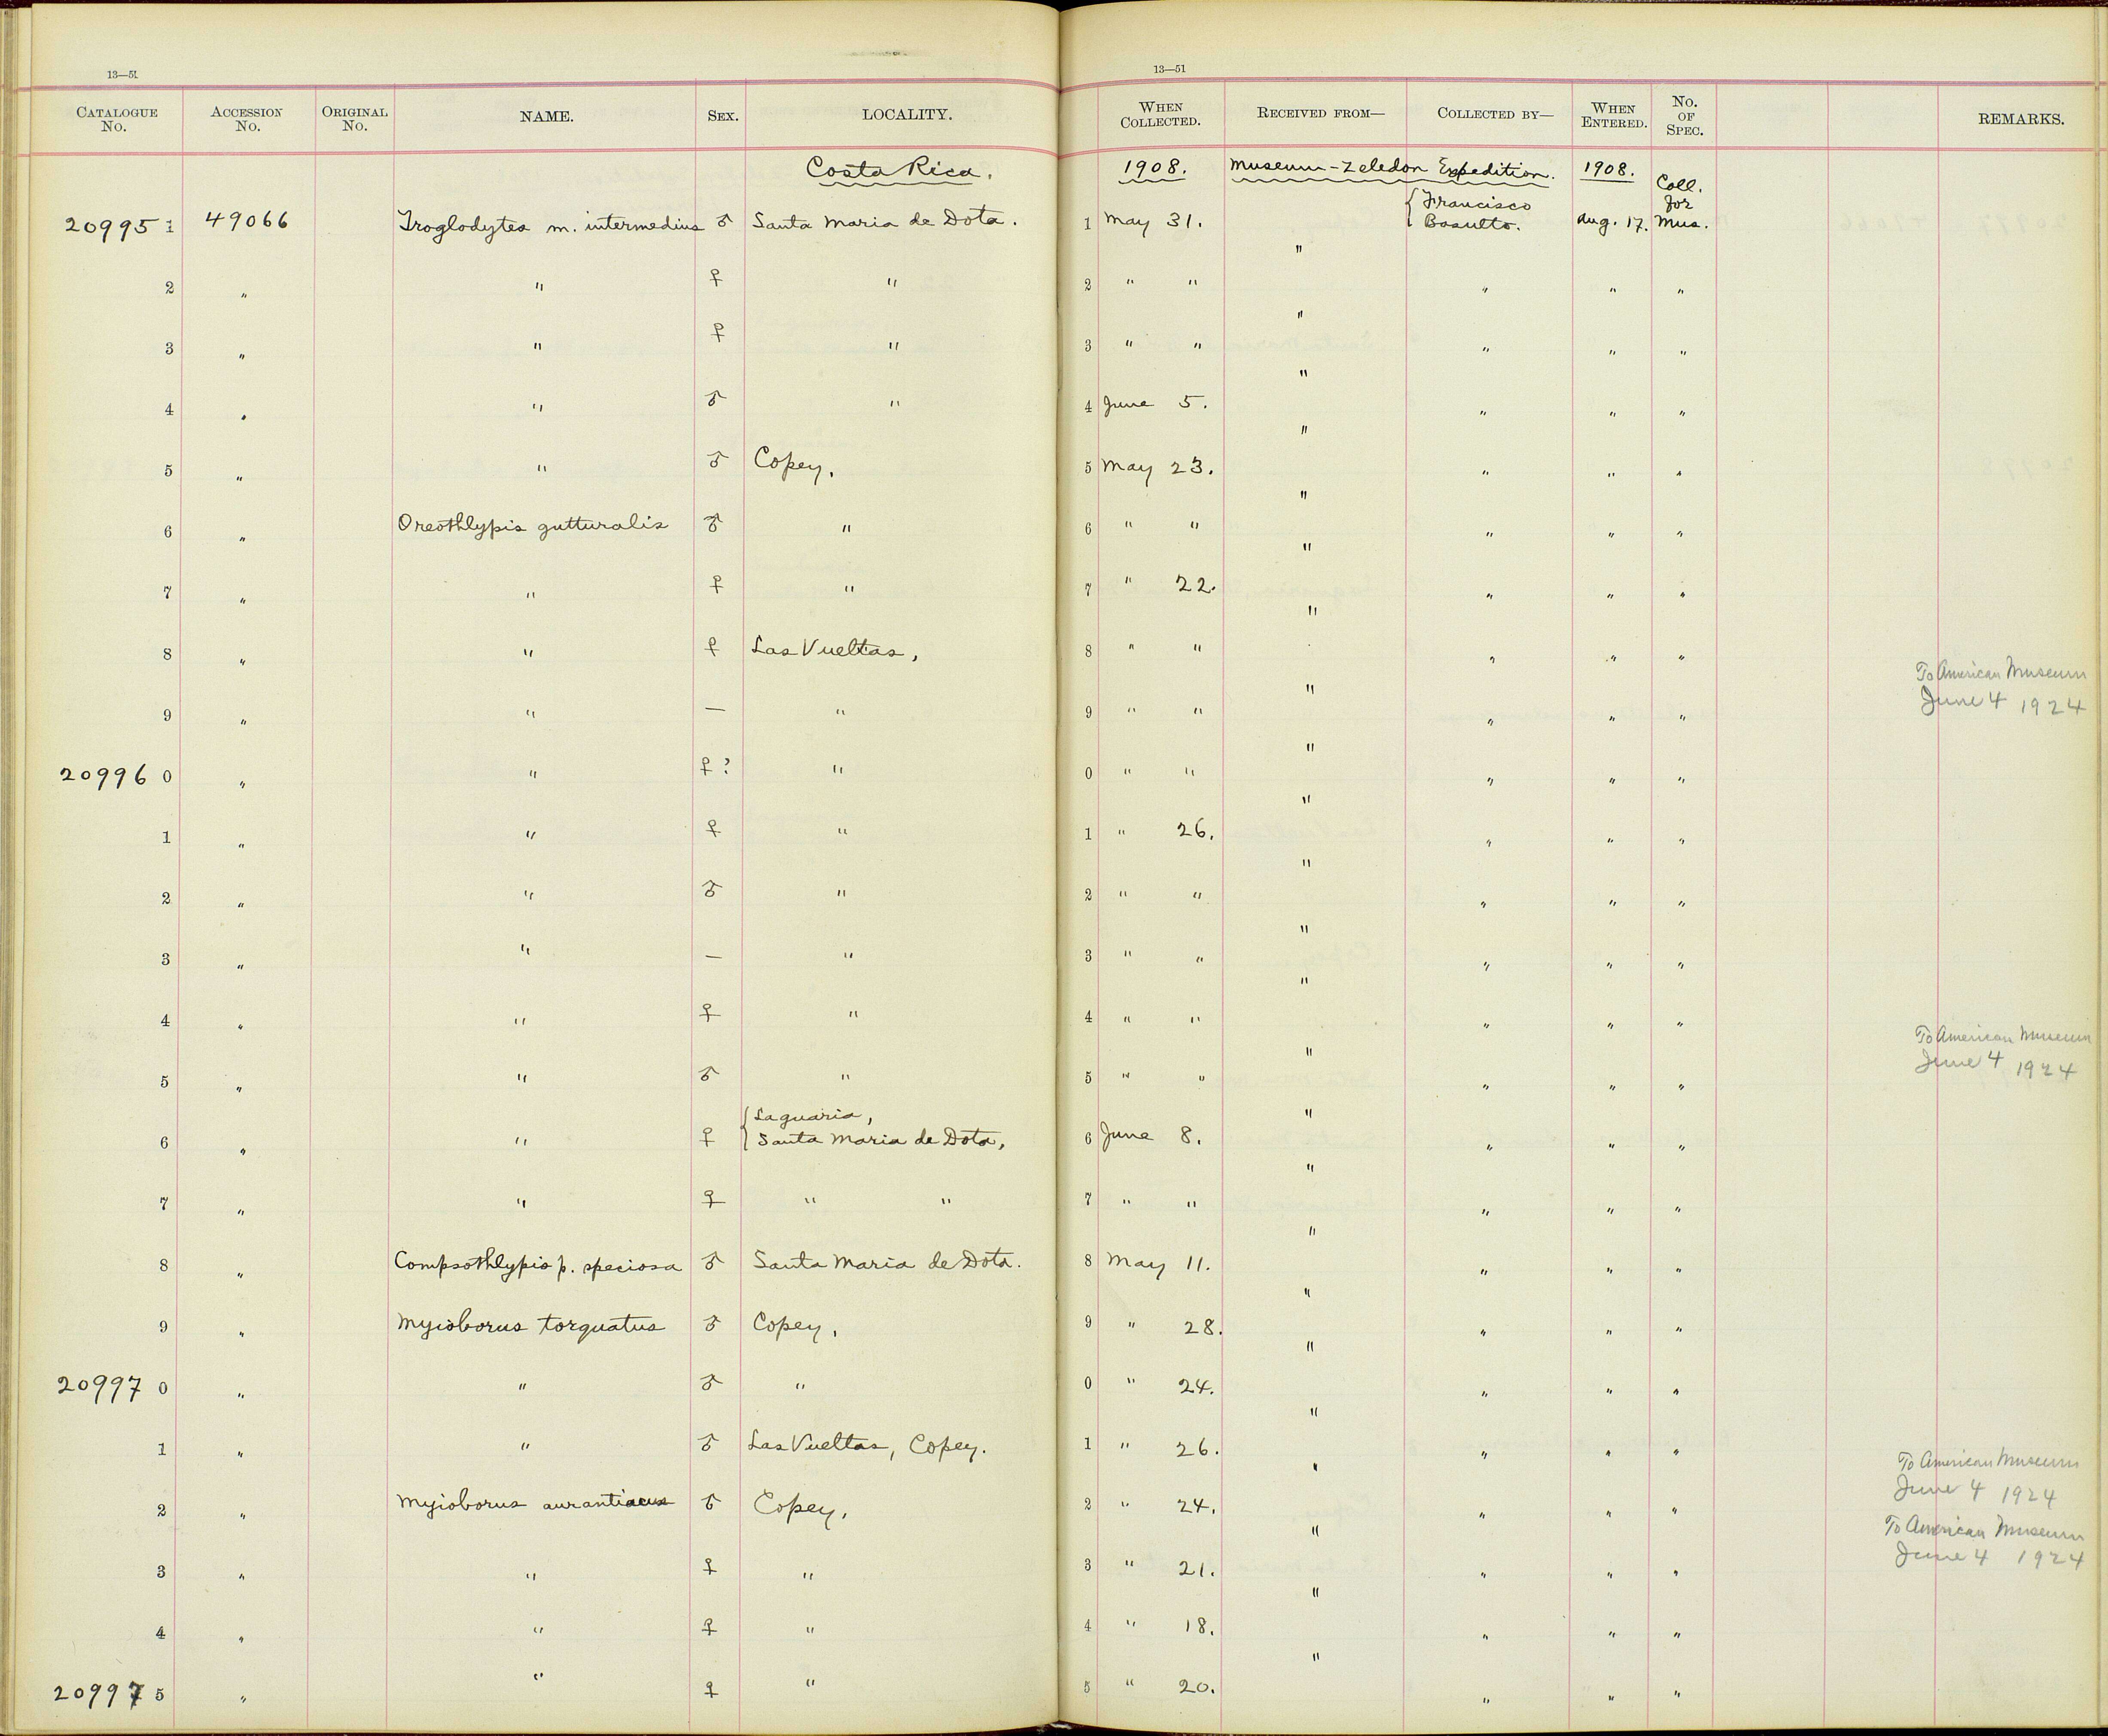 13—51 13—51
CATALOGUE No. ACCESSION No. ORIGINAL No. NAME. SEX. LOCALITY. WHEN COLLECTED. RECEIVED FROM— COLLECTED BY— WHEN ENTERED. No. OF SPEC. REMARKS.
Costa Rica. 1908. Museum-Zeledon Expedition. 1908. Coll. for Mus.
20995 1 49066 Troglodytes m. intermedius ♂ Santa Maria de Dota. 1 May 31. " { Francisco Basulto. Aug. 17.
2 " " ♀ " 2 " " " " " "
3 " " ♀ " 3 " " " " " "
4 " " ♂ " 4 June 5. " " " "
5 " " ♂ Copey, 5 May 23. " " " "
6 " Oreothlypis gutturalis ♂ " 6 " " " " " "
7 " " ♀ " 7 " 22. " " " "
8 " " ♀ Las Vueltas, 8 " " " " " " To American Museum June 4 1924
9 " " — " 9 " " " " " "
20996 0 " " ♀? " 0 " " " " " "
1 " " ♀ " 1 " 26. " " " "
2 " " ♂ " 2 " " " " " "
3 " " — " 3 " " " " " "
4 " " ♀ " 4 " " " " " " To American Museum June 4 1924
5 " " ♂ " 5 " " " " " "
6 " " ♀ { Laguaria, Santa Maria de Dota, 6 June 8. " " " "
7 " " ♀ " " 7 " " " " " "
8 " Compsothlypis p. speciosa ♂ Santa Maria de Dota. 8 May 11. " " " "
9 " Myioborus torquatus ♂ Copey, 9 " 28. " " " "
20997 0 " " ♂ " 0 " 24. " " " "
1 " " ♂ Las Vueltas, Copey. 1 " 26. " " " " To American Museum June 4 1924
2 " Myioborus aurantiacus ♂ Copey, 2 " 24. " " " " To American Museum June 4 1924
3 " " ♀ " 3 " 21. " " " "
4 " " ♀ " 4 " 18. " " " "
20997 5 " " ♀ " 5 " 20. " " "